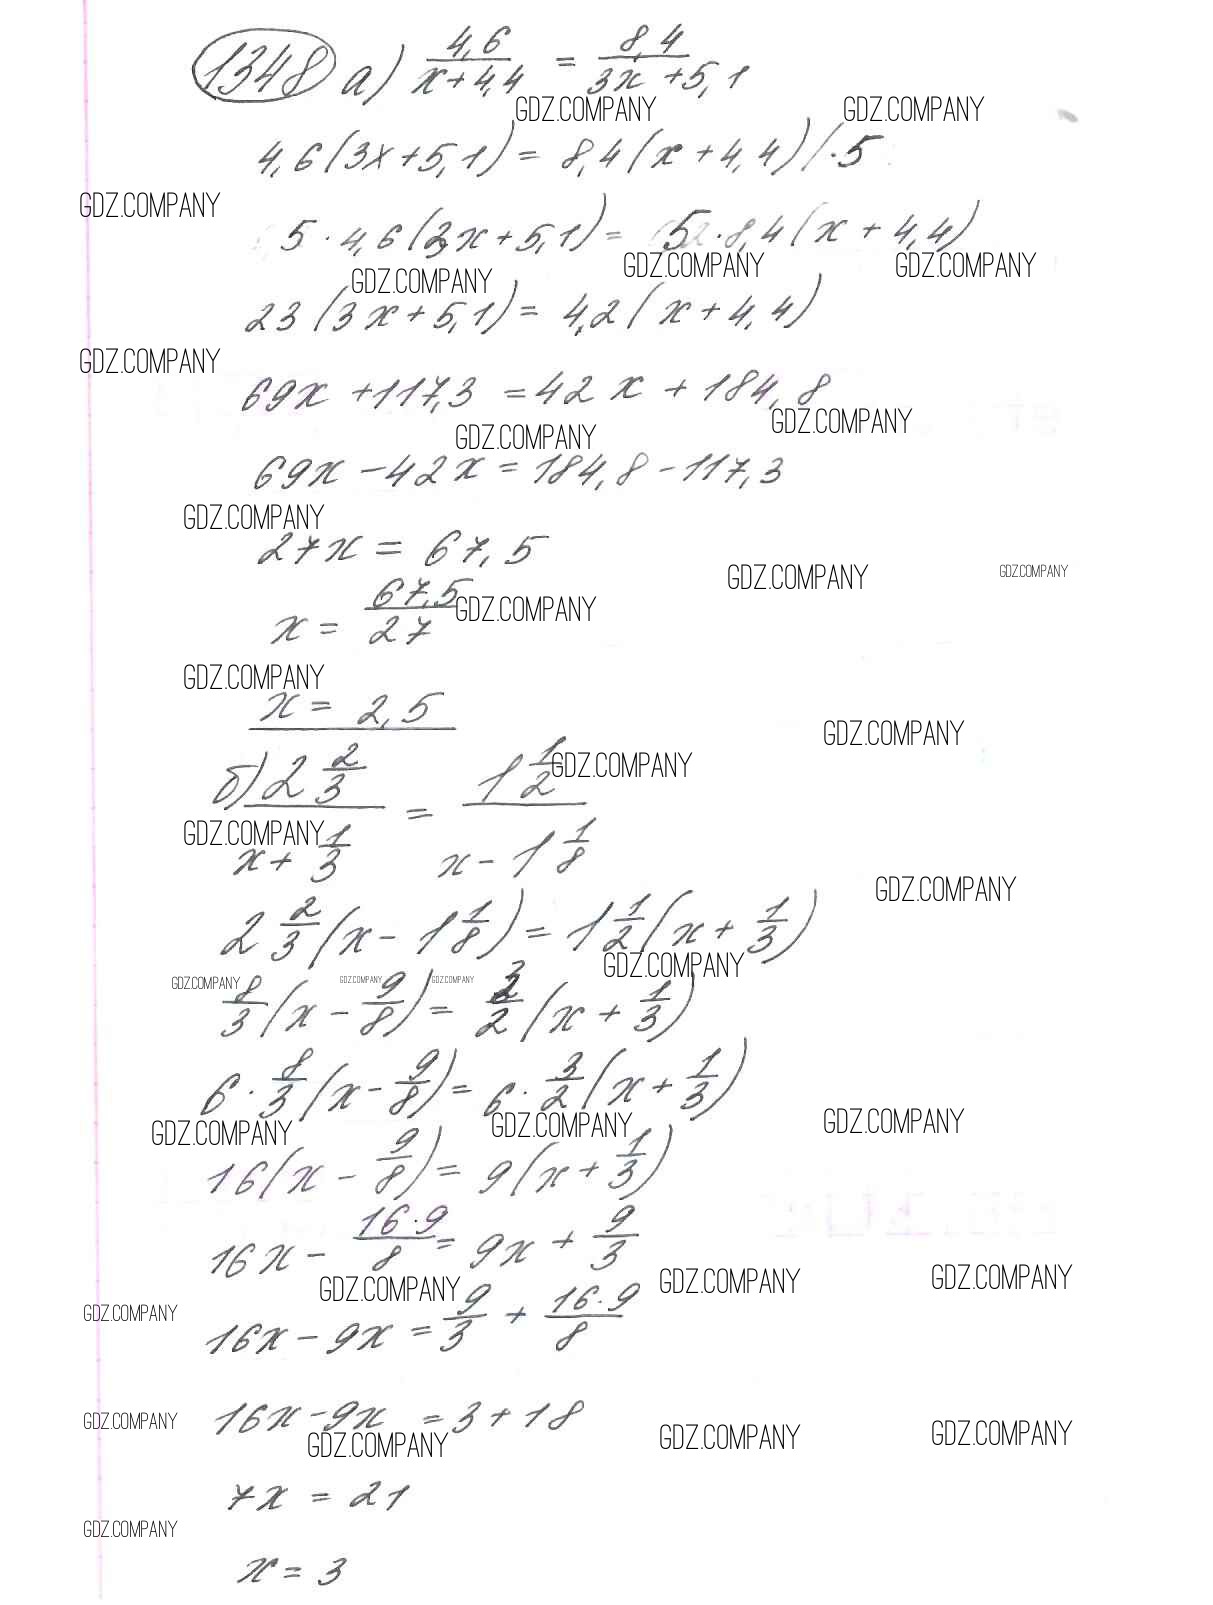 1348 а) 4,6/(x+4,4) = 8,4/(3x+5,1)
GDZ.COMPANY GDZ.COMPANY
4,6(3x+5,1) = 8,4(x+4,4) /·5
GDZ.COMPANY
5·4,6(3x+5,1) = 5·8,4(x+4,4)
GDZ.COMPANY GDZ.COMPANY GDZ.COMPANY
23(3x+5,1) = 4,2(x+4,4)
GDZ.COMPANY
69x+117,3 = 42x+184,8
GDZ.COMPANY GDZ.COMPANY
69x-42x = 184,8-117,3
GDZ.COMPANY
27x = 67,5
GDZ.COMPANY GDZ.COMPANY
x = 67,5/27
GDZ.COMPANY
GDZ.COMPANY
x = 2,5
GDZ.COMPANY
б) 2 2/3 / (x+1/3) = 1 1/2 / (x-1 1/8)
GDZ.COMPANY
GDZ.COMPANY
GDZ.COMPANY
2 2/3 (x-1 1/8) = 1 1/2 (x+1/3)
GDZ.COMPANY
GDZ.COMPANY GDZ.COMPANY GDZ.COMPANY
8/3 (x-9/8) = 3/2 (x+1/3)
6·8/3 (x-9/8) = 6·3/2 (x+1/3)
GDZ.COMPANY GDZ.COMPANY GDZ.COMPANY
16(x-9/8) = 9(x+1/3)
16x - 16·9/8 = 9x + 9/3
GDZ.COMPANY GDZ.COMPANY GDZ.COMPANY
GDZ.COMPANY
16x-9x = 9/3 + 16·9/8
16x-9x = 3+18
GDZ.COMPANY
GDZ.COMPANY GDZ.COMPANY GDZ.COMPANY
7x = 21
GDZ.COMPANY
x = 3